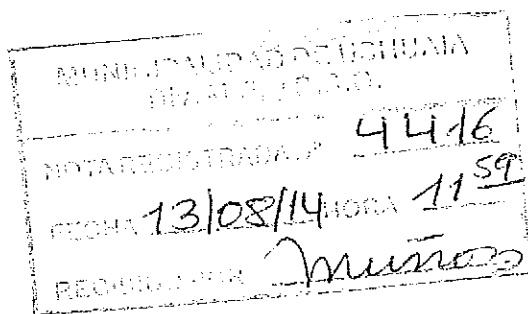 MUNICIPALIDAD DE USHUAIA
NOTA REGISTRADA 4416
FECHA 13/08/14 HORA 11 59
Muñoz